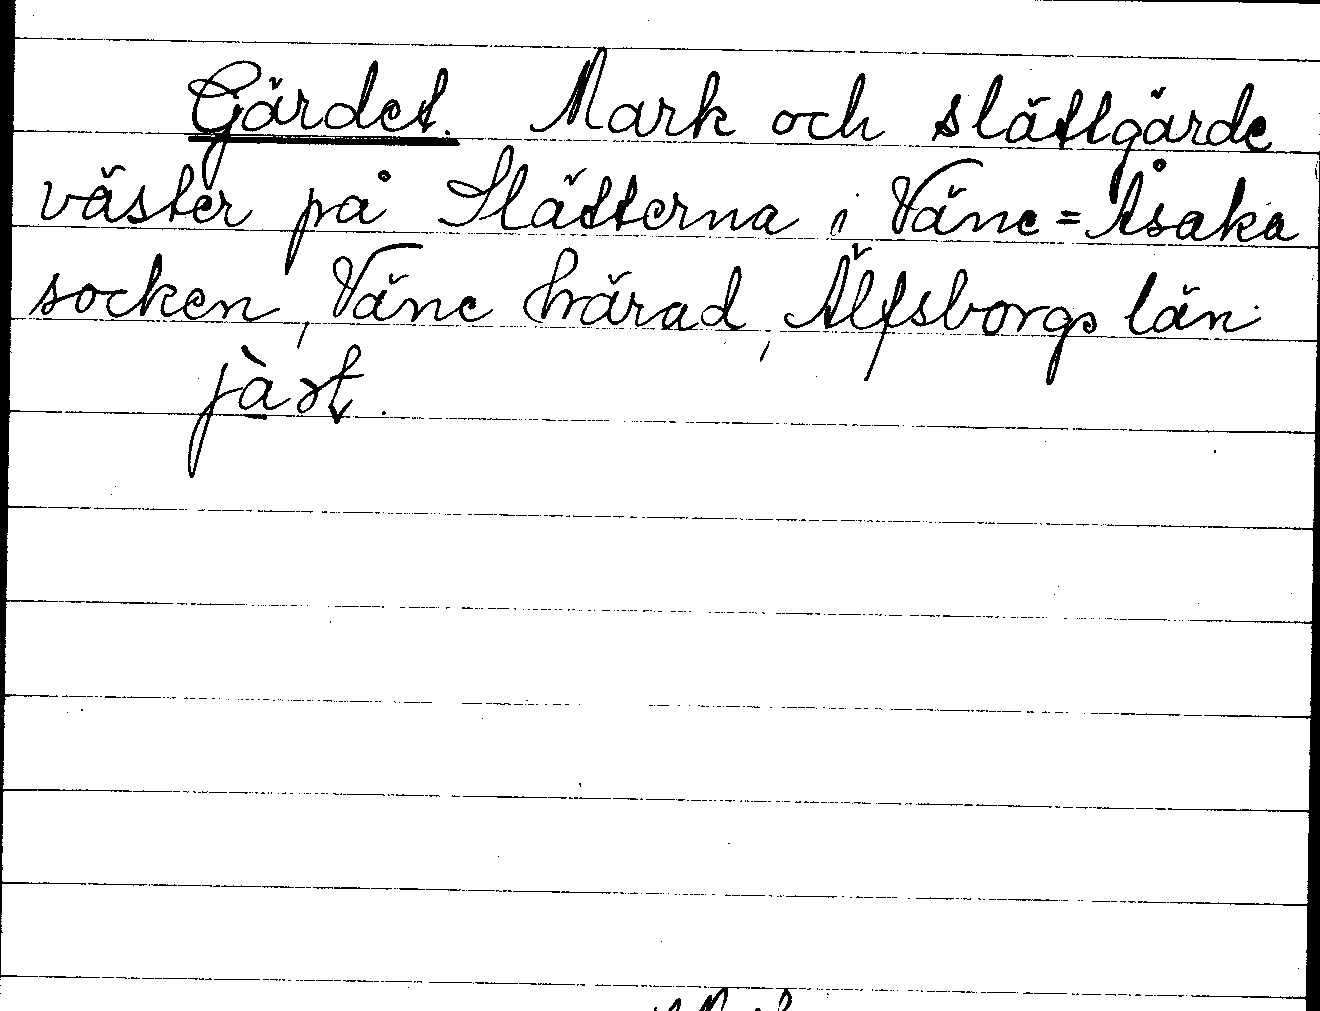 Gärdet. Mark och slättgärde
väster på Slätterna i Väne=Åsaka
socken, Väne härad, Älfsborgs län.